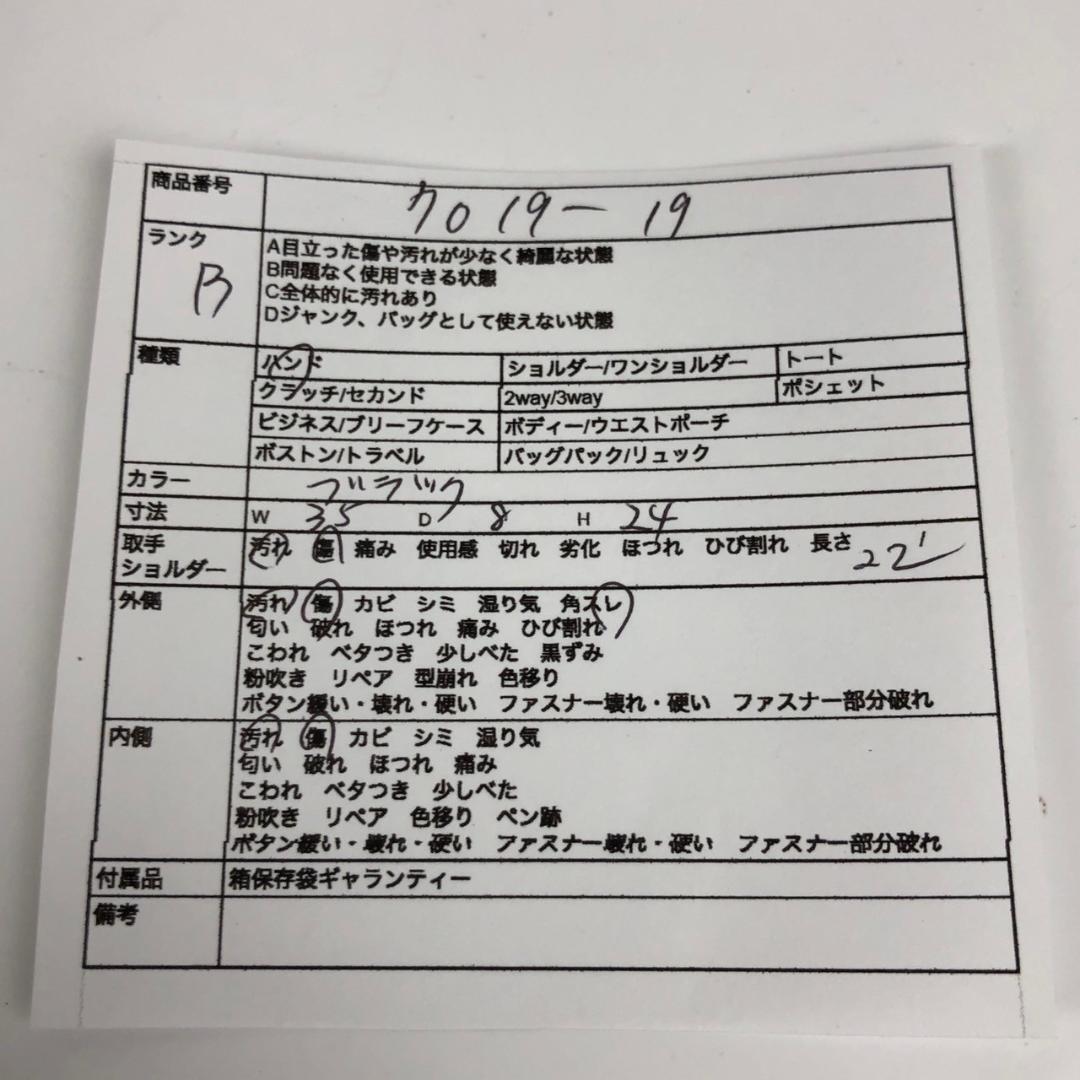 商品番号 ク019-19
ランク B
A目立った傷や汚れが少なく綺麗な状態
B問題なく使用できる状態
C全体的に汚れあり
Dジャンク、バッグとして使えない状態
種類 ハンド ショルダー/ワンショルダー トート
クラッチ/セカンド 2way/3way ポシェット
ビジネス/ブリーフケース ボディー/ウエストポーチ
ボストン/トラベル バッグパック/リュック
カラー ブラック
寸法 W 35 D 8 H 24
取手 汚れ 傷 痛み 使用感 切れ 劣化 ほつれ ひび割れ 長さ 22
ショルダー
外側 汚れ 傷 カビ シミ 湿り気 角スレ
匂い 破れ ほつれ 痛み ひび割れ
こわれ ベタつき 少しべた 黒ずみ
粉吹き リペア 型崩れ 色移り
ボタン緩い・壊れ・硬い ファスナー壊れ・硬い ファスナー部分破れ
内側 汚れ 傷 カビ シミ 湿り気
匂い 破れ ほつれ 痛み
こわれ ベタつき 少しべた
粉吹き リペア 色移り ペン跡
ボタン緩い・壊れ・硬い ファスナー壊れ・硬い ファスナー部分破れ
付属品 箱保存袋ギャランティー
備考